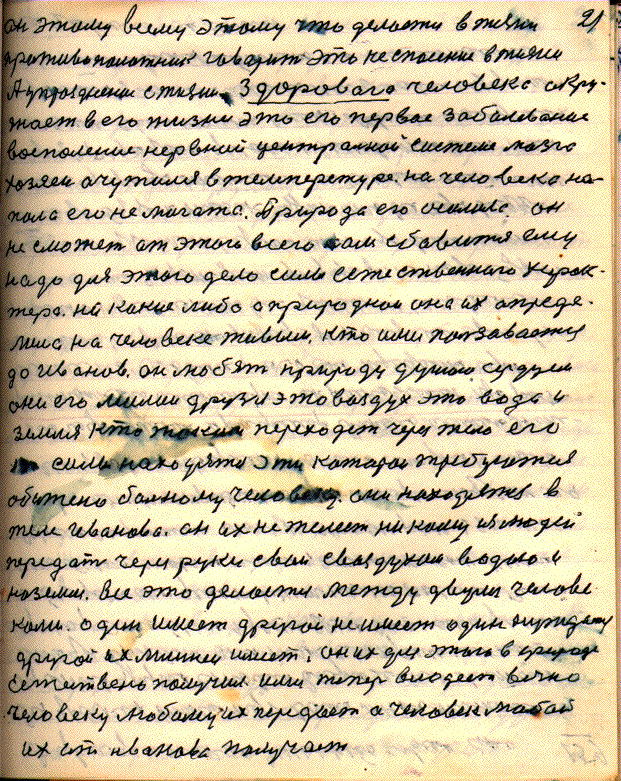 21
он этому всему этому что делается в жизни
противоположник говорит это не спасение в жизни
А упразднение с жизни. Здорового человека окру-
жает в его жизни это его первое заболевание
восполение нервний центральной системе мозга
хозяеи очутился в температуре. на человека на-
пала его не могота. Природа его осилила. он
не сможет от этого всего сам сбавится ему
надо для этого дело силы естественного харак-
тера. на какие либо а природной она их опреде-
лила на человеке живым. кто ими пользавается
до Иванов. он любят природу душою сердцем
они его милии друзя это воздух это вода и
земля кто таким переходет через тело его
силы находятся эти которои требуются
обижено больному человеку. они находятся в
теле Иванова. он их не жилеет ни кому из людей
передать через руки свои своздухом водою и
наземли. Все это делается между двумя челове
ками. один имеет другой не имеет один нуждаету
другой их имеет. он их для этого в природе
естествено получил ими тепер владеет вечно
человеку любому их передает а человек любой
их от иванова получает